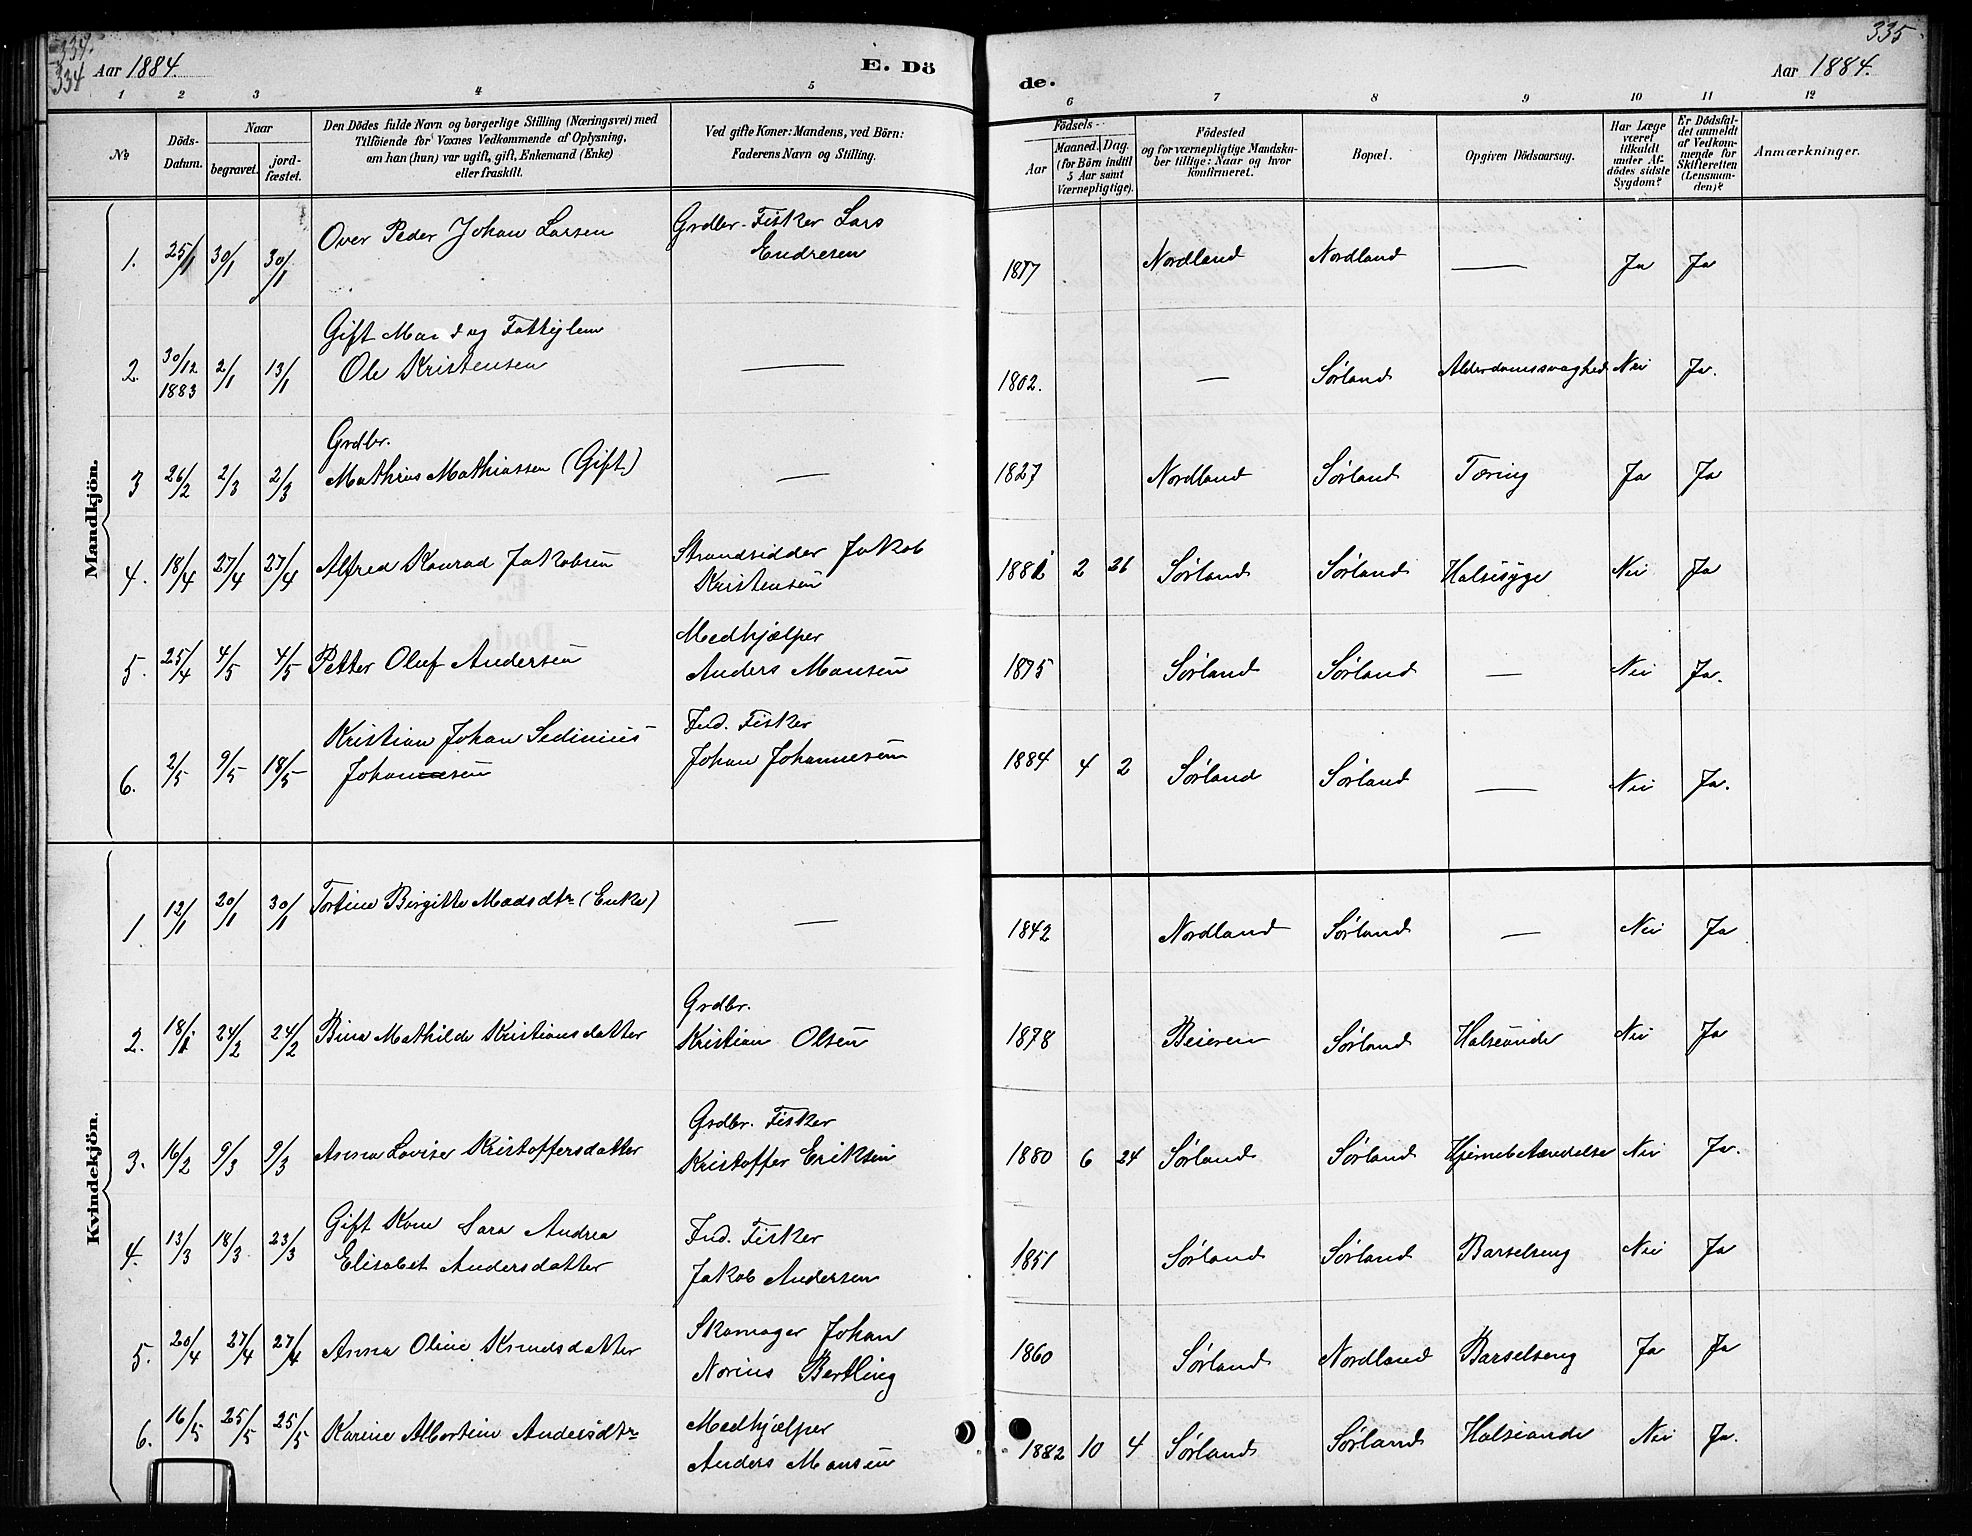 334.
334
Aar 1884.
E. Dö
de.
Aar 1884.
335
1 2 3 4 5 6 7 8 9 10 11 12
№
Döds-Datum.
Naar
begravet.
jord-fæstet.
Den Dödes fulde Navn og borgerlige Stilling (Næringsvei) med
Tilföiende for Voxnes Vedkommende af Oplysning,
om han (hun) var ugift, gift, Enkemand (Enke)
eller fraskilt.
Ved gifte Koner: Mandens, ved Börn:
Faderens Navn og Stilling.
Födsels-
Aar
Maaned. Dag.
(for Börn indtil
5 Aar samt
Værnepligtige).
Födested
og for værnepligtige Mandskaber tillige: Naar og hvor
konfirmeret.
Bopæl.
Opgiven Dödsaarsag.
Har Læge
været
tilkaldt
under Afdödes sidste
Sygdom?
Er Dödsfaldet anmeldt
af Vedkommende for
Skifteretten
(Lensmanden)?
Anmærkninger.
Mandkjön.
1. 25/1 30/1 30/1 Over Peder Johan Larsen Grdbr. Fisker Lars
Endresen 1877 Nordland Nordland — Ja Ja
2. 30/12 1883 2/1 13/1 Gift Mand og Fattiglem
Ole Kristensen — 1802. — Sørland Alderdomssvaghed Nei Ja.
3 26/2 2/3 2/3 Grdbr.
Mathius Mathiassen (Gift) — 1827 Nordland Sørland Tæring Ja Ja
4. 18/4 27/4 27/4 Alfred Konrad Jakobsen Strandsidder Jakob
Kristensen 1881 2 26 Sørland Sørland Halssyge Nei Ja
5. 25/4 4/5 4/5 Petter Oluf Andersen Medhjælper
Anders Monsen 1875 Sørland Sørland — Nei Ja.
6. 2/5 9/5 18/5 Kristian Johan Sedinius
Johannesen Ind. Fisker
Johan Johannesen 1884 4 2 Sørland Sørland — Nei Ja.
Kvindekjön.
1. 12/1 20/1 30/1 Tortine Birgitte Madsdtr (Enke) — 1842 Nordland Sørland — Nei Ja
2. 18/1 24/2 24/2 Bina Mathilde Kristiansdatter Grdbr.
Kristian Olsen 1878 Beieren Sørland Halsonde Nei Ja
3. 16/2 9/3 9/3 Anna Lovise Kristoffersdatter Grdbr. Fisker
Kristoffer Eriksen 1880 6 24 Sørland Sørland Hjernebetændelse Nei Ja.
4. 13/3 18/3 23/3 Gift Kone Sara Andrea
Elisabet Andersdatter Ind. Fisker
Jakob Andersen 1851 Sørland Sørland Barselseng Nei Ja
5. 20/4 27/4 27/4 Anna Oline Knudsdatter Skomager Johan
Norius Bertling 1860 Sørland Nordland Barselseng Ja Ja
6. 16/5 25/5 25/5 Karine Albertine Andersdtr Medhjælper
Anders Monsen 1882 10 4 Sørland Sørland Halsonde Nei Ja.